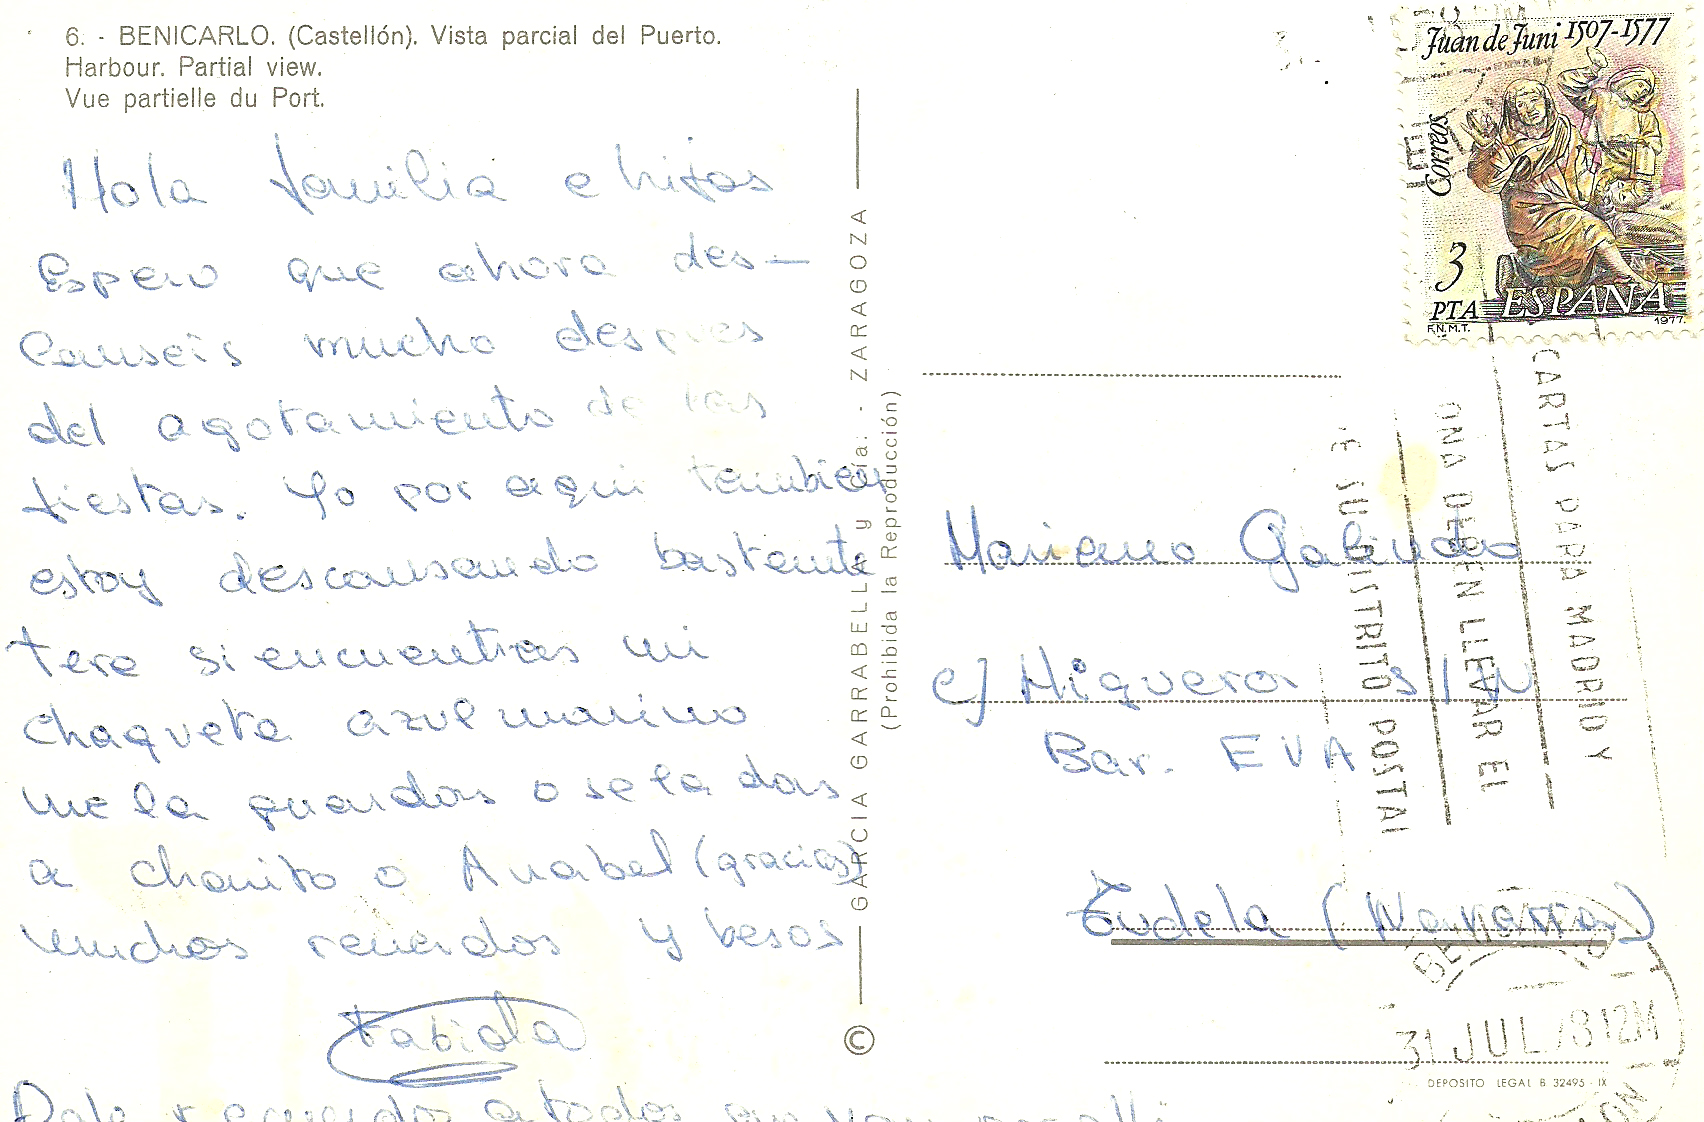 6. - BENICARLO. (Castellón). Vista parcial del Puerto.
Harbour. Partial view.
Vue partielle du Port.
Hola familia e hijos
Espero que ahora des-
canseis mucho despues
del agotamiento de las
fiestas. Yo por aqui tambien
estoy descansando bastante
Tere si encuentras mi
chaqueta azul marino
me la guardas o se la das
a chanito o Anabel (gracias)
muchos recuerdos y besos
Fabiola
Dale recuerdos a todos
GARCIA GARRABELLA y Cía. - ZARAGOZA
(Prohibida la Reproducción)
©
Juan de Juni 1507-1577
Correos
3
PTA ESPAÑA
F.N.M.T. 1977
CARTAS PARA MADRID Y
ONA DEBEN LLEVAR EL
DE SU DISTRITO POSTAL
Mariano Galindo
c/ Higuera s/N
Bar. EVA
Tudela (Navarra)
31 JUL 78 12M
DEPOSITO LEGAL B 32495 - IX